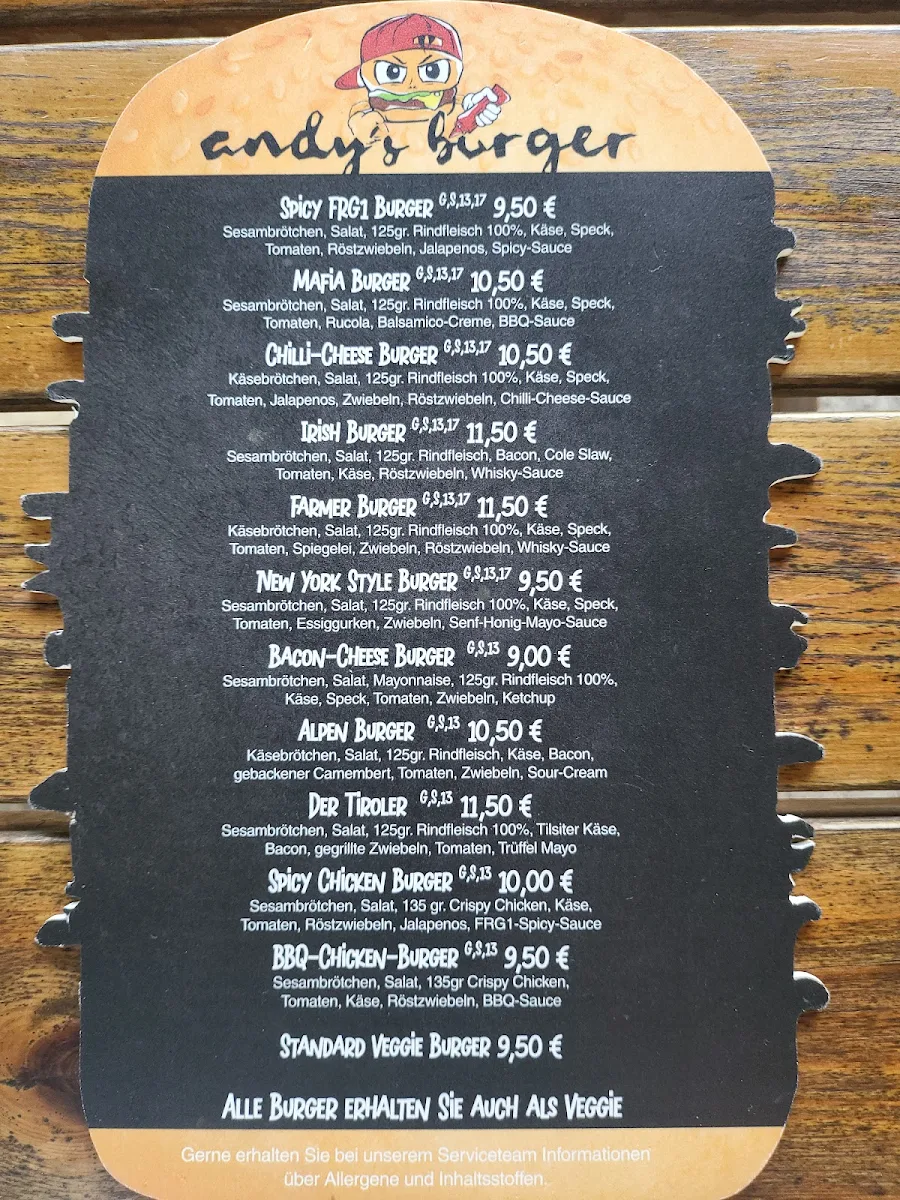 andy's burger
Spicy FRG1 Burger G,S,13,17 9,50 €
Sesambrötchen, Salat, 125gr. Rindfleisch 100%, Käse, Speck,
Tomaten, Röstzwiebeln, Jalapenos, Spicy-Sauce
Mafia Burger G,S,13,17 10,50 €
Sesambrötchen, Salat, 125gr. Rindfleisch 100%, Käse, Speck,
Tomaten, Rucola, Balsamico-Creme, BBQ-Sauce
Chilli-Cheese Burger G,S,13,17 10,50 €
Käsebrötchen, Salat, 125gr. Rindfleisch 100%, Käse, Speck,
Tomaten, Jalapenos, Zwiebeln, Röstzwiebeln, Chilli-Cheese-Sauce
Irish Burger G,S,13,17 11,50 €
Sesambrötchen, Salat, 125gr. Rindfleisch, Bacon, Cole Slaw,
Tomaten, Käse, Röstzwiebeln, Whisky-Sauce
Farmer Burger G,S,13,17 11,50 €
Käsebrötchen, Salat, 125gr. Rindfleisch 100%, Käse, Speck,
Tomaten, Spiegelei, Zwiebeln, Röstzwiebeln, Whisky-Sauce
New York Style Burger G,S,13,17 9,50 €
Sesambrötchen, Salat, 125gr. Rindfleisch 100%, Käse, Speck,
Tomaten, Essiggurken, Zwiebeln, Senf-Honig-Mayo-Sauce
Bacon-Cheese Burger G,S,13 9,00 €
Sesambrötchen, Salat, Mayonnaise, 125gr. Rindfleisch 100%,
Käse, Speck, Tomaten, Zwiebeln, Ketchup
Alpen Burger G,S,13 10,50 €
Käsebrötchen, Salat, 125gr. Rindfleisch, Käse, Bacon,
gebackener Camembert, Tomaten, Zwiebeln, Sour-Cream
Der Tiroler G,S,13 11,50 €
Sesambrötchen, Salat, 125gr. Rindfleisch 100%, Tilsiter Käse,
Bacon, gegrillte Zwiebeln, Tomaten, Trüffel Mayo
Spicy Chicken Burger G,S,13 10,00 €
Sesambrötchen, Salat, 135 gr. Crispy Chicken, Käse,
Tomaten, Röstzwiebeln, Jalapenos, FRG1-Spicy-Sauce
BBQ-Chicken-Burger G,S,13 9,50 €
Sesambrötchen, Salat, 135gr Crispy Chicken,
Tomaten, Käse, Röstzwiebeln, BBQ-Sauce
Standard Veggie Burger 9,50 €
Alle Burger erhalten Sie auch als Veggie
Gerne erhalten Sie bei unserem Serviceteam Informationen
über Allergene und Inhaltsstoffen.